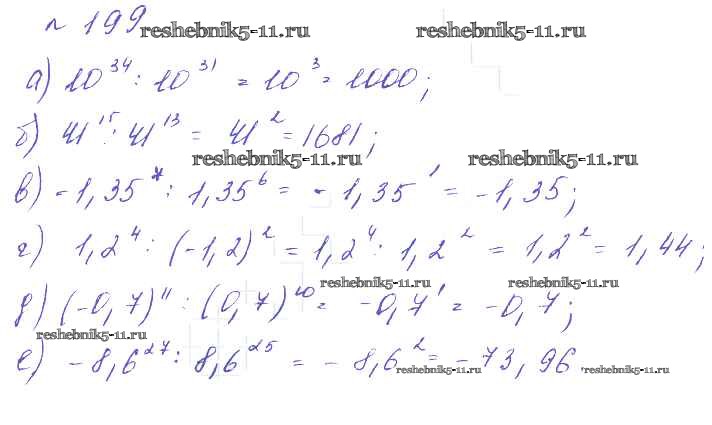 № 199 reshebnik5-11.ru reshebnik5-11.ru
а) 10³⁴ : 10³¹ = 10³ = 1000;
б) 41¹⁵ : 41¹³ = 41² = 1681;
reshebnik5-11.ru reshebnik5-11.ru
в) -1,35⁷ : 1,35⁶ = -1,35¹ = -1,35;
г) 1,2⁴ : (-1,2)² = 1,2⁴ : 1,2² = 1,2² = 1,44;
reshebnik5-11.ru reshebnik5-11.ru
д) (-0,7)¹¹ : (0,7)¹⁰ = -0,7¹ = -0,7;
reshebnik5-11.ru
е) -8,6²⁷ : 8,6²⁵ = -8,6² = -73,96.
reshebnik5-11.ru reshebnik5-11.ru